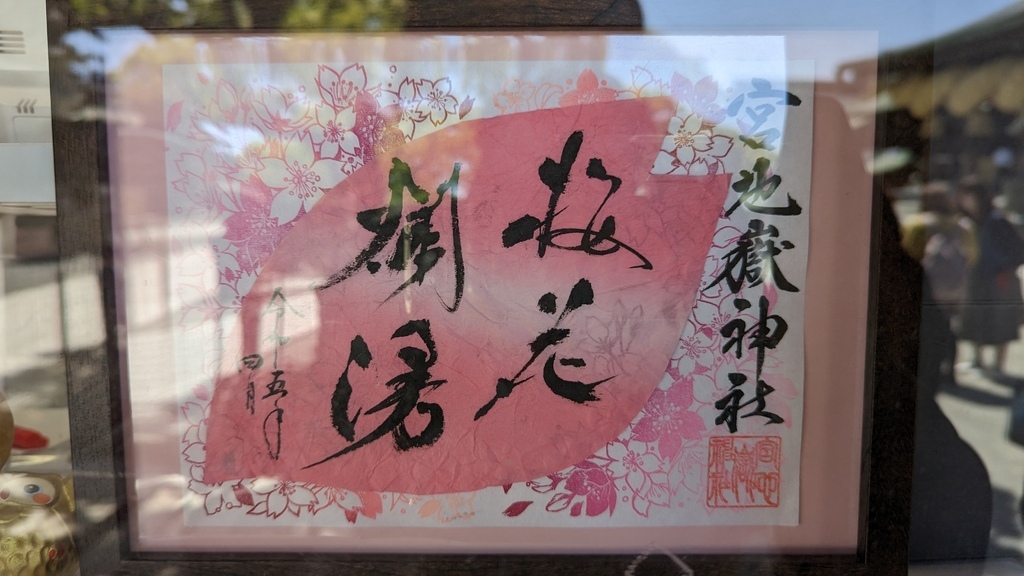 宮地嶽神社
宮地
嶽
神社
桜花
爛漫
令和五年
四月